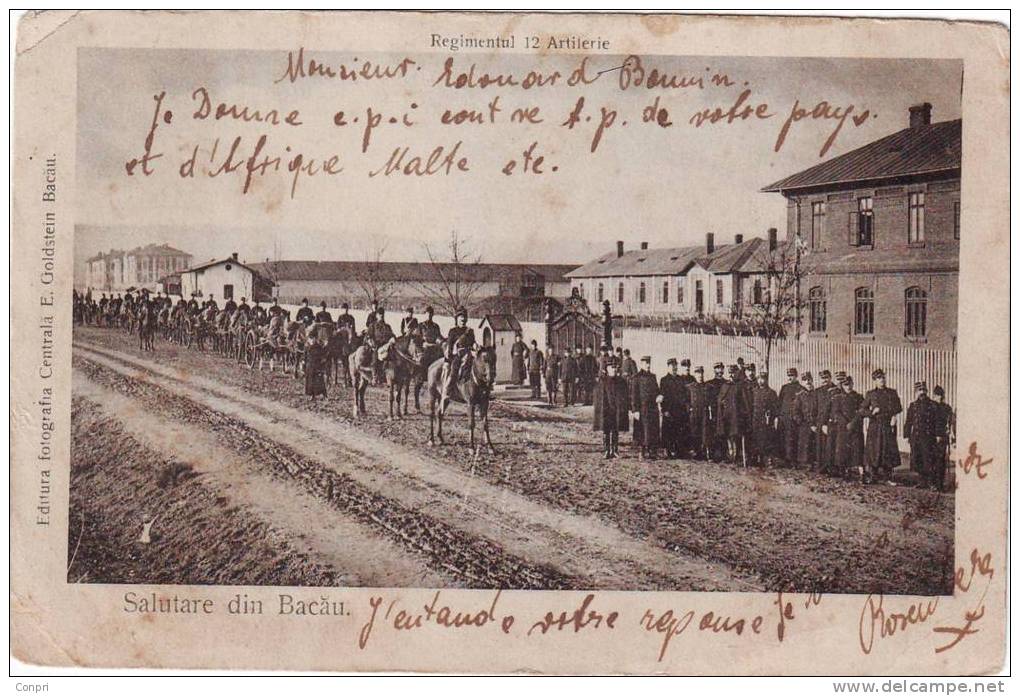 Regimentul 12 Artilerie
Monsieur Edouard Bonnin.
Je Donne e.p.i contre t.p. de votre pays.
et d'Afrique Malte etc.
Editura fotografia Centrală E. Goldstein Bacău.
Salutare din Bacău.
J'entande votre reponse
Conpri
www.delcampe.net